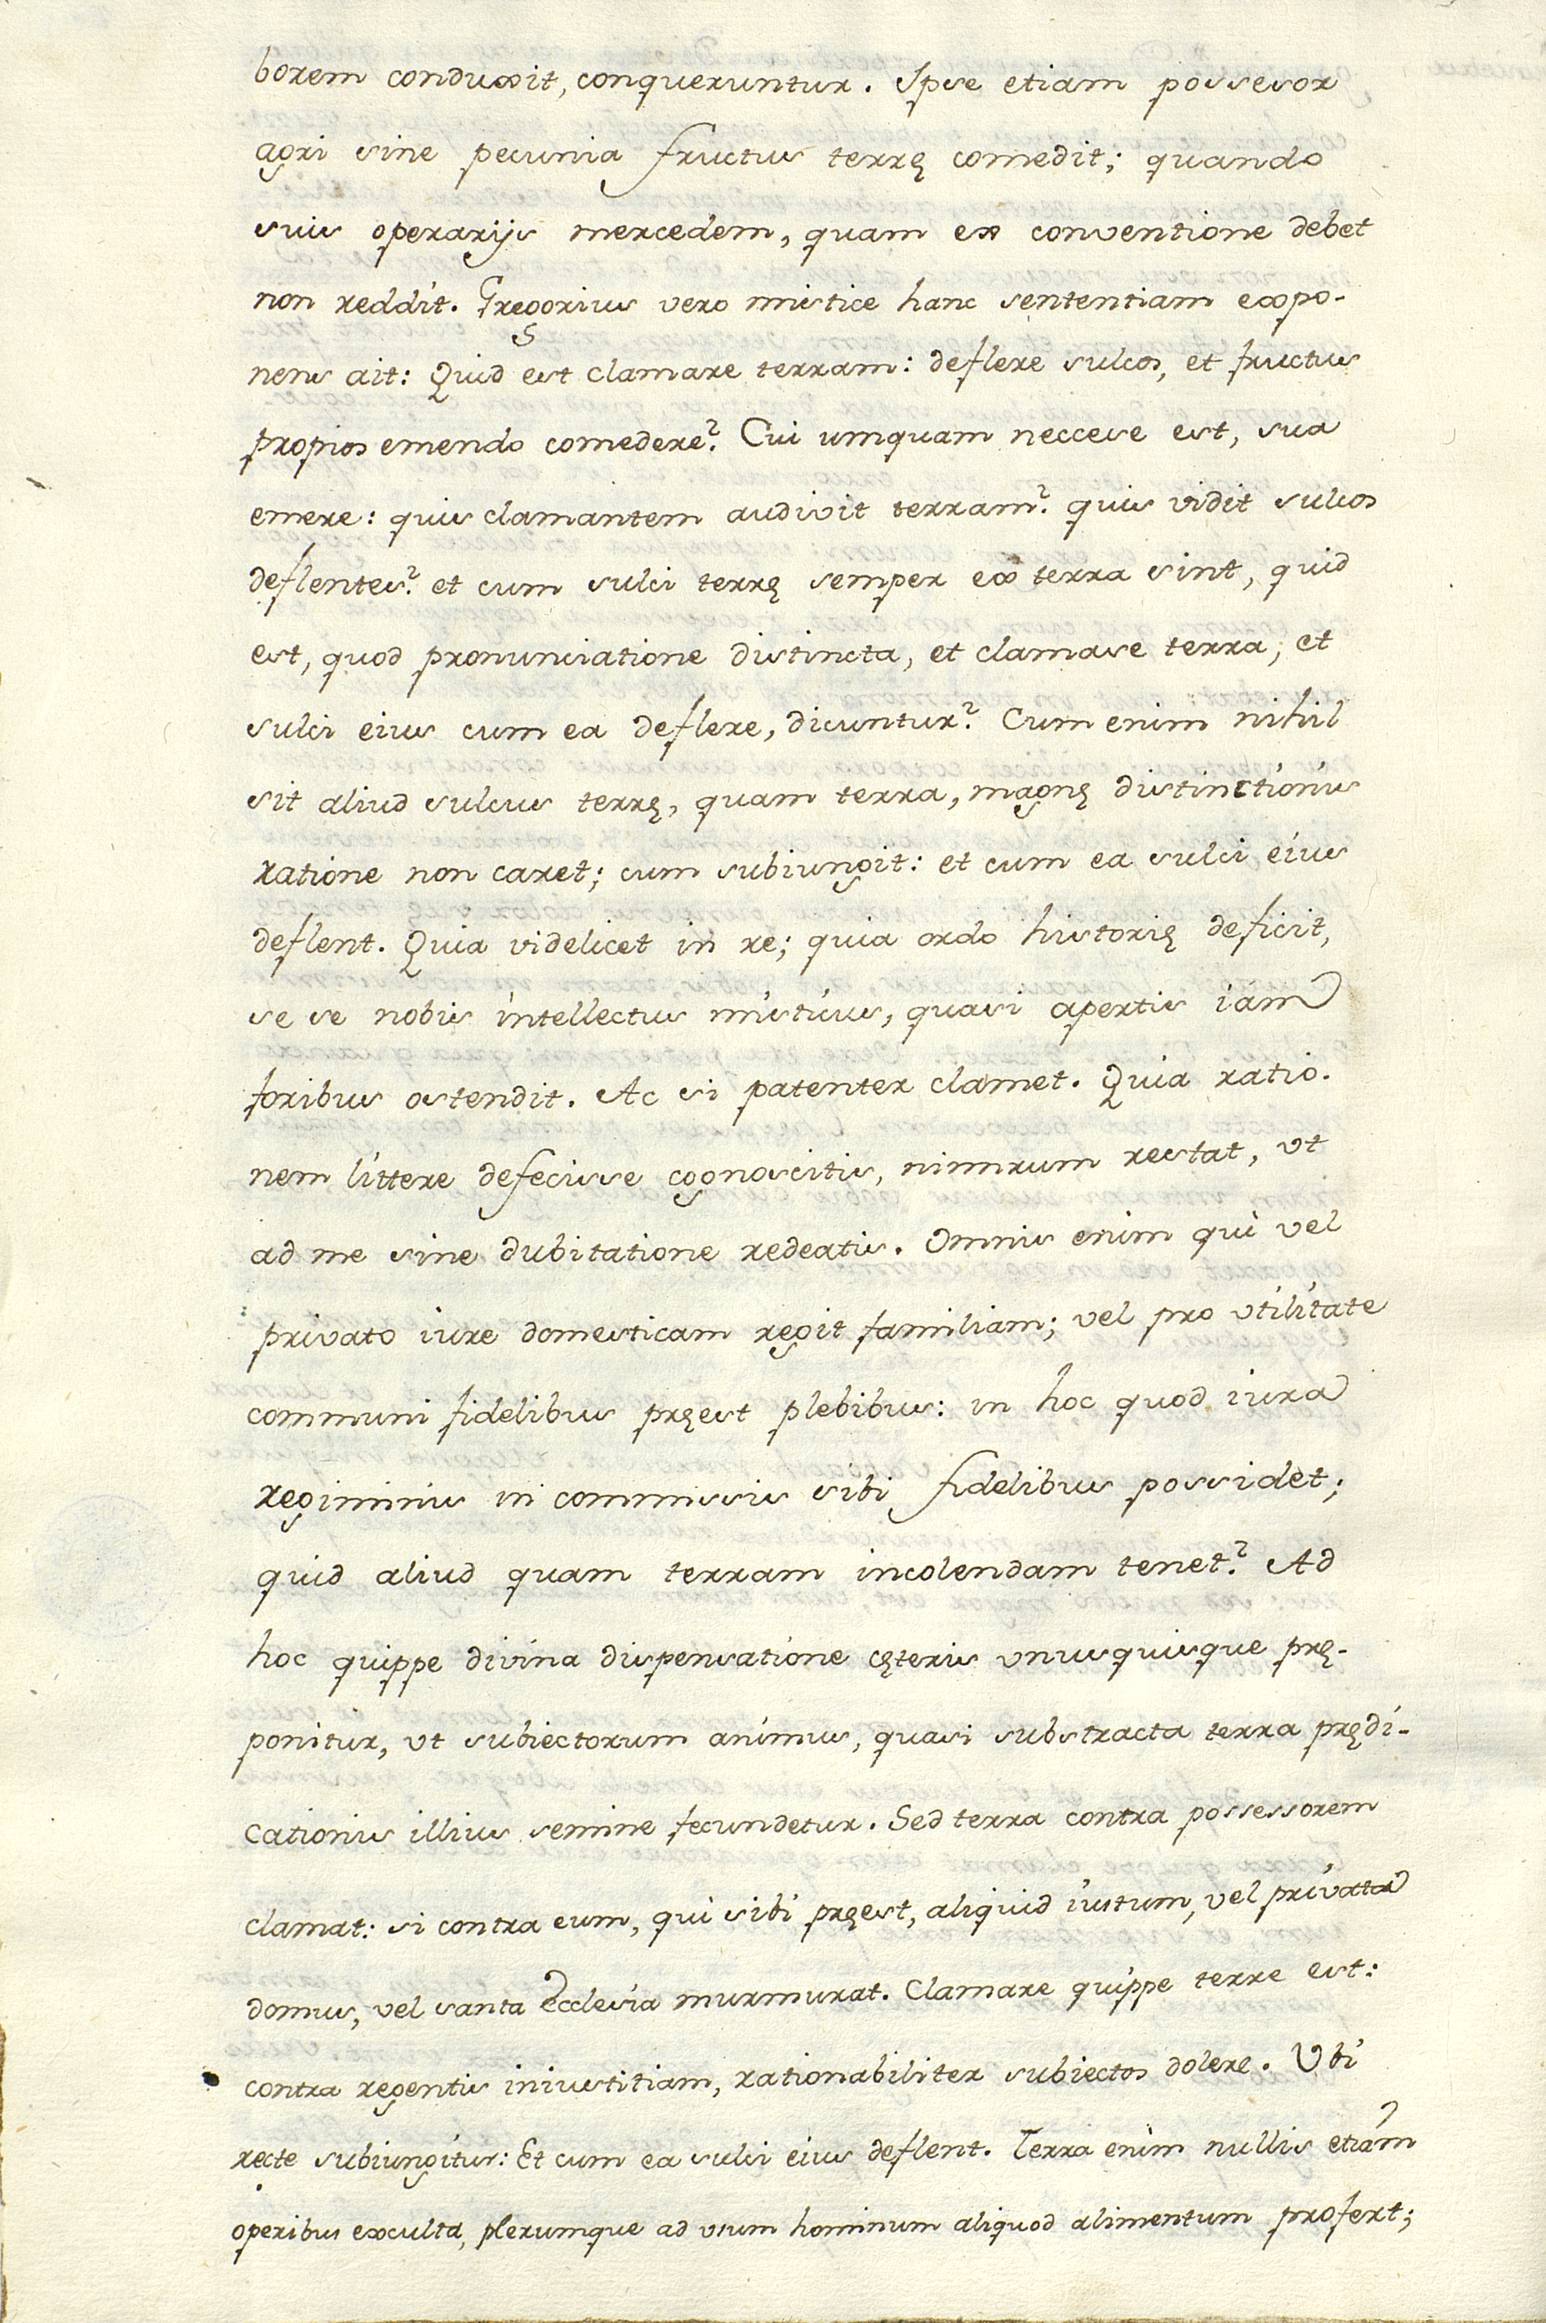 borem conduxit, conqueruntur. Ipse etiam possesor
agri sine pecunia fructus terrę comedit; quando
suis operarijs mercedem, quam ex conventione debet
non reddit. Gregorius vero mistice hanc sententiam expo-
nens ait: Quid est clamare terram: deflere sulcos, et fructus
propios emendo comedere? Cui umquam neccese est, sua
emere: quis clamantem audivit terram? quis vidit sulcos
deflentes? et cum sulci terrę semper ex terra sint, quid
est, quod pronunciatione distincta, et clamase terra, et
sulci eius cum ea deflere, dicuntur? Cum enim nihil
sit aliud sulcus terrę, quam terra, magnę distinctionis
ratione non caret; cum subiungit: et cum ea sulci eius
deflent. Quia videlicet in re; quia ordo historię deficit,
se se nobis intellectus misticus, quasi apertis iam
foribus ostendit. Ac si patenter clamet. Quia ratio.
nem littere defecisse cognoscitis, nimirum restat, vt
ad me sine dubitatione redeatis. Omnis enim qui vel
privato iure domesticam regit familiam; vel pro vtilitate
communi fidelibus pręest plebibus: in hoc quod iura
regiminis in commissis sibi fidelibus possidet;
quid aliud quam terram incolendam tenet? Ad
hoc quippe divina dispensatione cęteris vnusquisque prę-
ponitur, vt subiectorum animus, quasi substracta terra prędi-
cationis illius semine fecundetur. Sed terra contra possessorem
clamat: si contra eum, qui sibi pręest, aliquid iustum, vel privata
domus, vel santa Ecclesia murmurat. Clamare quippe terre est:
contra regentis iniustitiam, rationabiliter subiectos dolere. Vbi
recte subiungitur: Et cum ea sulci eius deflent. Terra enim nullis etiam
operibus exculta, plerumque ad vsum hominum aliquod alimentum profert;